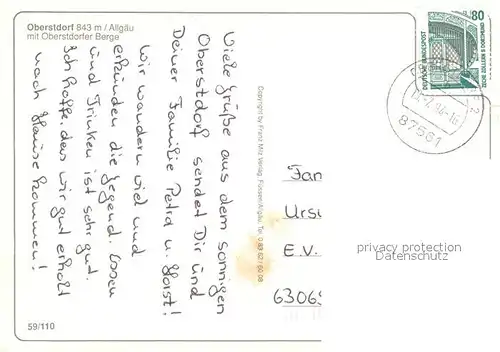 Oberstdorf 843 m / Allgäu
mit Oberstdorfer Berge
Viele Grüße aus dem sonnigen
Oberstdorf sendet Dir und
Deiner Familie Petra u. Horst!
Wir wandern viel und
erkunden die Gegend. Essen
und Trinken ist sehr gut.
Ich hoffe das wir gut erholt
nach Hause kommen!
Copyright by Franz Milz Verlag, Füssen/Allgäu, Tel. 0 83 62 / 60 08
80
DEUTSCHE BUNDESPOST
ZECHE ZOLLERN II DORTMUND
87561
Fam
Ursu
E.V.
63069
privacy protection
Datenschutz
59/110